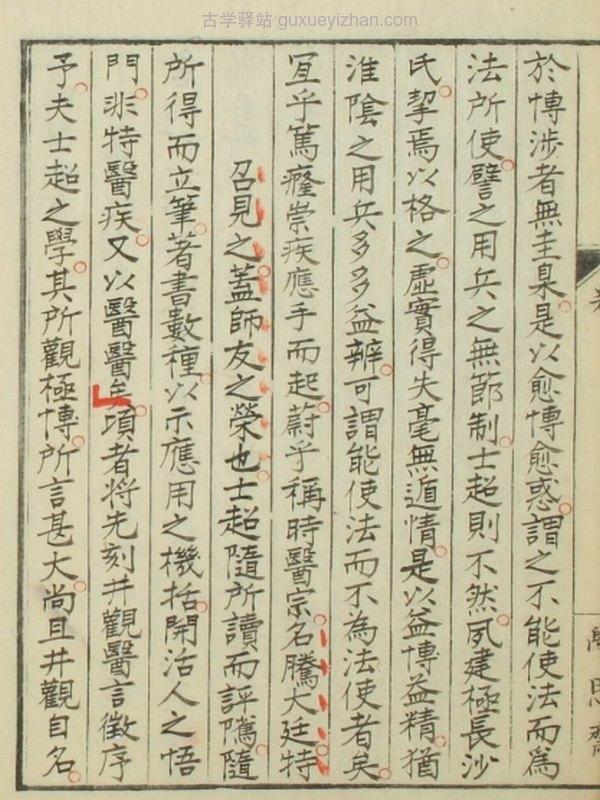 古学驿站 guxueyizhan.com
於博涉者無圭臬是以愈博愈惑謂之不能使法而為
法所使譬之用兵之無節制士超則不然夙建極長沙
氏挈焉以格之虛實得失毫無遁情是以益博益精猶
淮陰之用兵多多益辦可謂能使法而不為法使者矣
宜乎篤癃崇疾應手而起蔚乎稱時醫宗名騰大廷特
召見之蓋師友之榮也士超隨所讀而評隲隨
所得而立筆著書數種以示應用之機括開活人之悟
門非特醫疾又以醫醫矣頃者將先刻井觀醫言徵序
予夫士超之學其所觀極博所言甚大尚且井觀自名
思齋